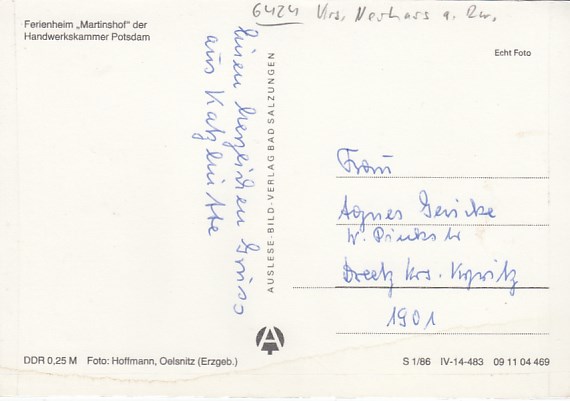 6424 Krs. Neuhaus a. Rw.
Ferienheim „Martinshof" der
Handwerkskammer Potsdam
Echt Foto
Einen herzlichen Gruss
aus Katzhütte
AUSLESE-BILD-VERLAG BAD SALZUNGEN
Frau
Agnes Gericke
W. Pieckstr
Dreetz Krs. Kyritz
1901
A
DDR 0,25 M Foto: Hoffmann, Oelsnitz (Erzgeb.)
S 1/86 IV-14-483 09 11 04 469